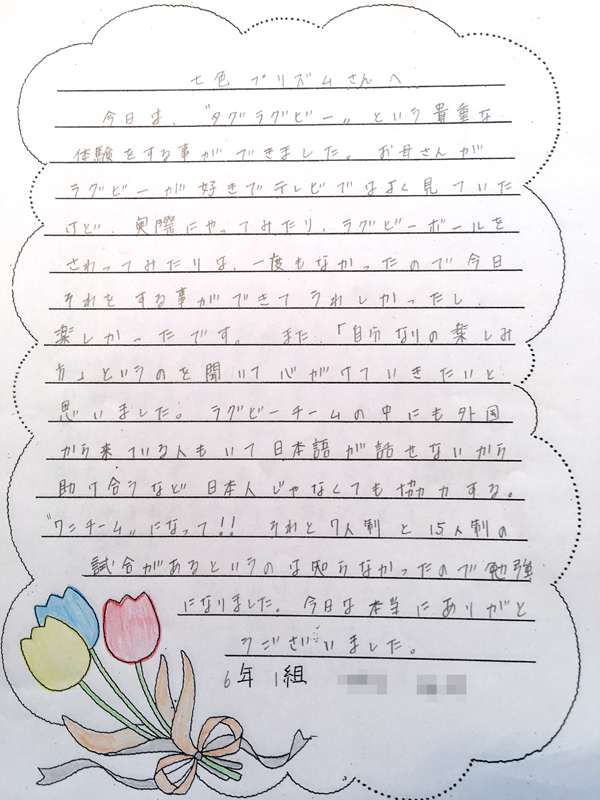 七色プリズムさんへ
今日は、"タグラグビー"という貴重な
体験をする事ができました。お母さんが
ラグビーが好きでテレビではよく見ていた
けど、実際にやってみたり、ラグビーボールを
さわってみたりは、一度もなかったので今日
それをする事ができてうれしかったし、
楽しかったです。また、「自分なりの楽しみ
方」というのを聞いて心がけていきたいと
思いました。ラグビーチームの中にも外国
から来ている人もいて日本語が話せないから
助け合うなど日本人じゃなくても協力する。
"ワンチーム"になって!!それと7人制と15人制の
試合があるというのは知らなかったので勉強
になりました。今日は本当にありがと
うございました。
6年1組